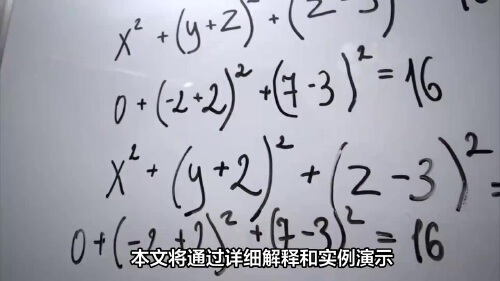 x² + (y+2)² + (z-3)
0 + (-2+2)² + (7-3)² = 16
x² + (y+2)² + (z-3)² =
0 + (-2+2)² + (7-3)² = 16
本文将通过详细解释和实例演示